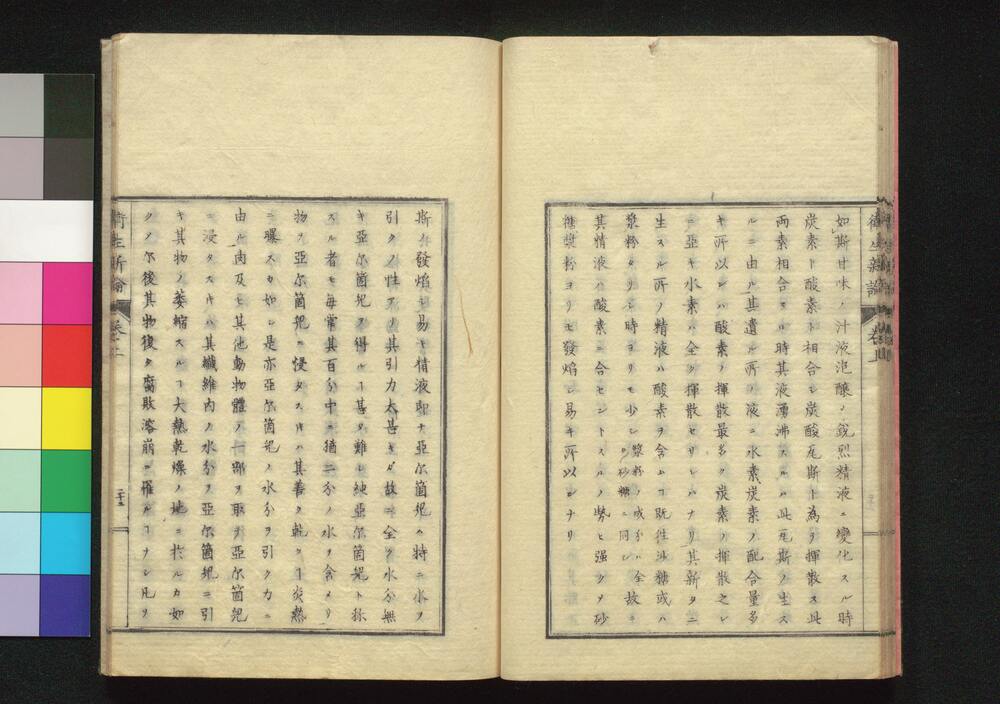 如斯甘味ノ汁液泡醸ノ鋭烈精液ニ變化スル時
炭素ト酸素ト相合シ炭酸瓦斯ト為リ揮散ス此
両素相合スルノ時其液湧沸スルハ此瓦斯ノ生ス
ルニ由ル其遺ル所ノ液ニ水素炭素ノ配合量多
キ所以シハ酸素ノ揮散最多ク炭素ノ揮散之レ
ニ亞キ水素ハ全ク揮散セサレハナリ其新タニ
生スル所ノ精液ハ酸素ヲ含ムヿ既往沙糖或ハ
漿粉タリシ時ヨリモ少シ漿粉ノ成分ハ全ク砂糖ニ同シ故ニ
其精液ハ酸素ニ合セントスルノ勢ヒ強クメ砂
糖漿粉ヨリモ發焰シ易キ所以シナリ
斯ク發焰シ易キ精液即チ亞尓箇児ハ特ニ水ヲ
引クノ性アリ其引力太甚キカ故ニ全ク水分無
キ亞尓箇児ヲ得ルヿ甚タ難シ純亞尓箇児ト称
スル者モ毎常其百分中ニ猶二分ノ水ヲ含メリ
物ヲ亞尓箇児ニ侵タスキハ其善ク乾クヿ炎熱
ニ曝スカ如シ是亦亞尓箇児ノ水分ヲ引クカニ
由ル肉及ヒ其他動物體ノ一部ヲ取テ亞尓箇児
ニ浸タスキハ其纖維内ノ水分ヲ亞尓箇児ニ引
キ其物ノ萎縮スルヿ大熱乾燥ノ地ニ於ルカ如
クノ尓後其物復タ腐敗溶崩ニ罹ルヿナシ凡ソ
衛生新論 巻二 二十三